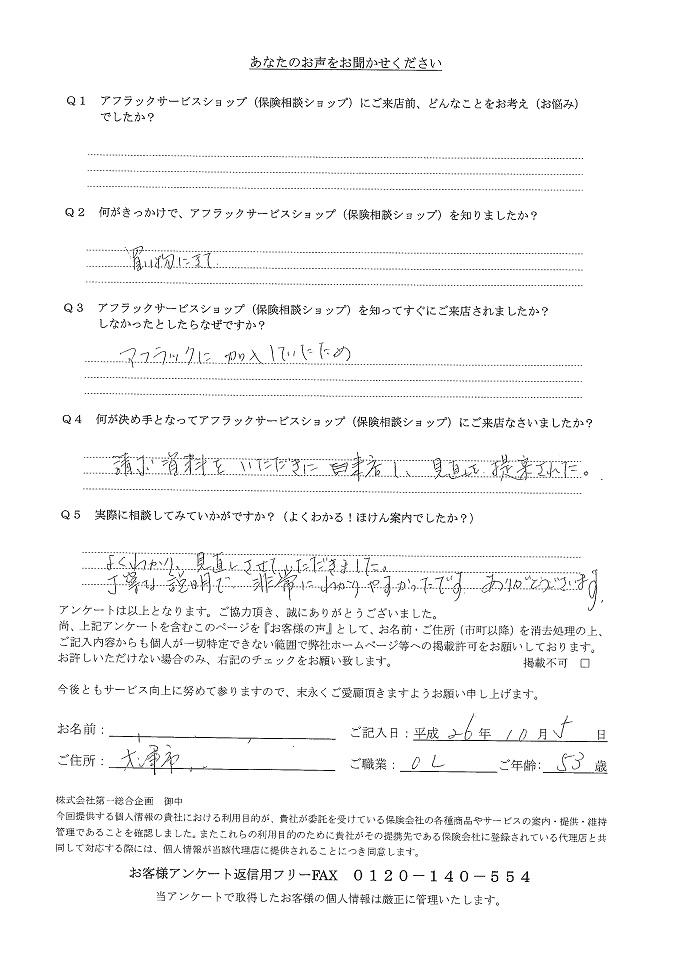 あなたのお声をお聞かせください
Q1 アフラックサービスショップ（保険相談ショップ）にご来店前、どんなことをお考え（お悩み）
でしたか？
Q2 何がきっかけで、アフラックサービスショップ（保険相談ショップ）を知りましたか？
買い物にきて
Q3 アフラックサービスショップ（保険相談ショップ）を知ってすぐにご来店されましたか？
しなかったとしたらなぜですか？
アフラックに加入していたため
Q4 何が決め手となってアフラックサービスショップ（保険相談ショップ）にご来店なさいましたか？
請求資料をいただきに 来店し、見直しを提案された。
Q5 実際に相談してみていかがですか？（よくわかる！ほけん案内でしたか？）
よくわかり、見直しさせていただきました。
丁寧な説明で、非常にわかりやすかったです ありがとうございます。
アンケートは以上となります。ご協力頂き、誠にありがとうございました。
尚、上記アンケートを含むこのページを『お客様の声』として、お名前・ご住所（市町以降）を消去処理の上、
ご記入内容からも個人が一切特定できない範囲で弊社ホームページ等への掲載許可をお願いしております。
お許しいただけない場合のみ、右記のチェックをお願い致します。 掲載不可 □
今後ともサービス向上に努めて参りますので、末永くご愛顧頂きますようお願い申し上げます。
お名前： ご記入日：平成 26 年 10 月 5 日
ご住所： 大津市 ご職業： OL ご年齢： 53 歳
株式会社第一総合企画 御中
今回提供する個人情報の貴社における利用目的が、貴社が委託を受けている保険会社の各種商品やサービスの案内・提供・維持
管理であることを確認しました。またこれらの利用目的のために貴社がその提携先である保険会社に登録されている代理店と共
同して対応する際には、個人情報が当該代理店に提供されることにつき同意します。
お客様アンケート返信用フリーFAX 0120－140－554
当アンケートで取得したお客様の個人情報は厳正に管理いたします。